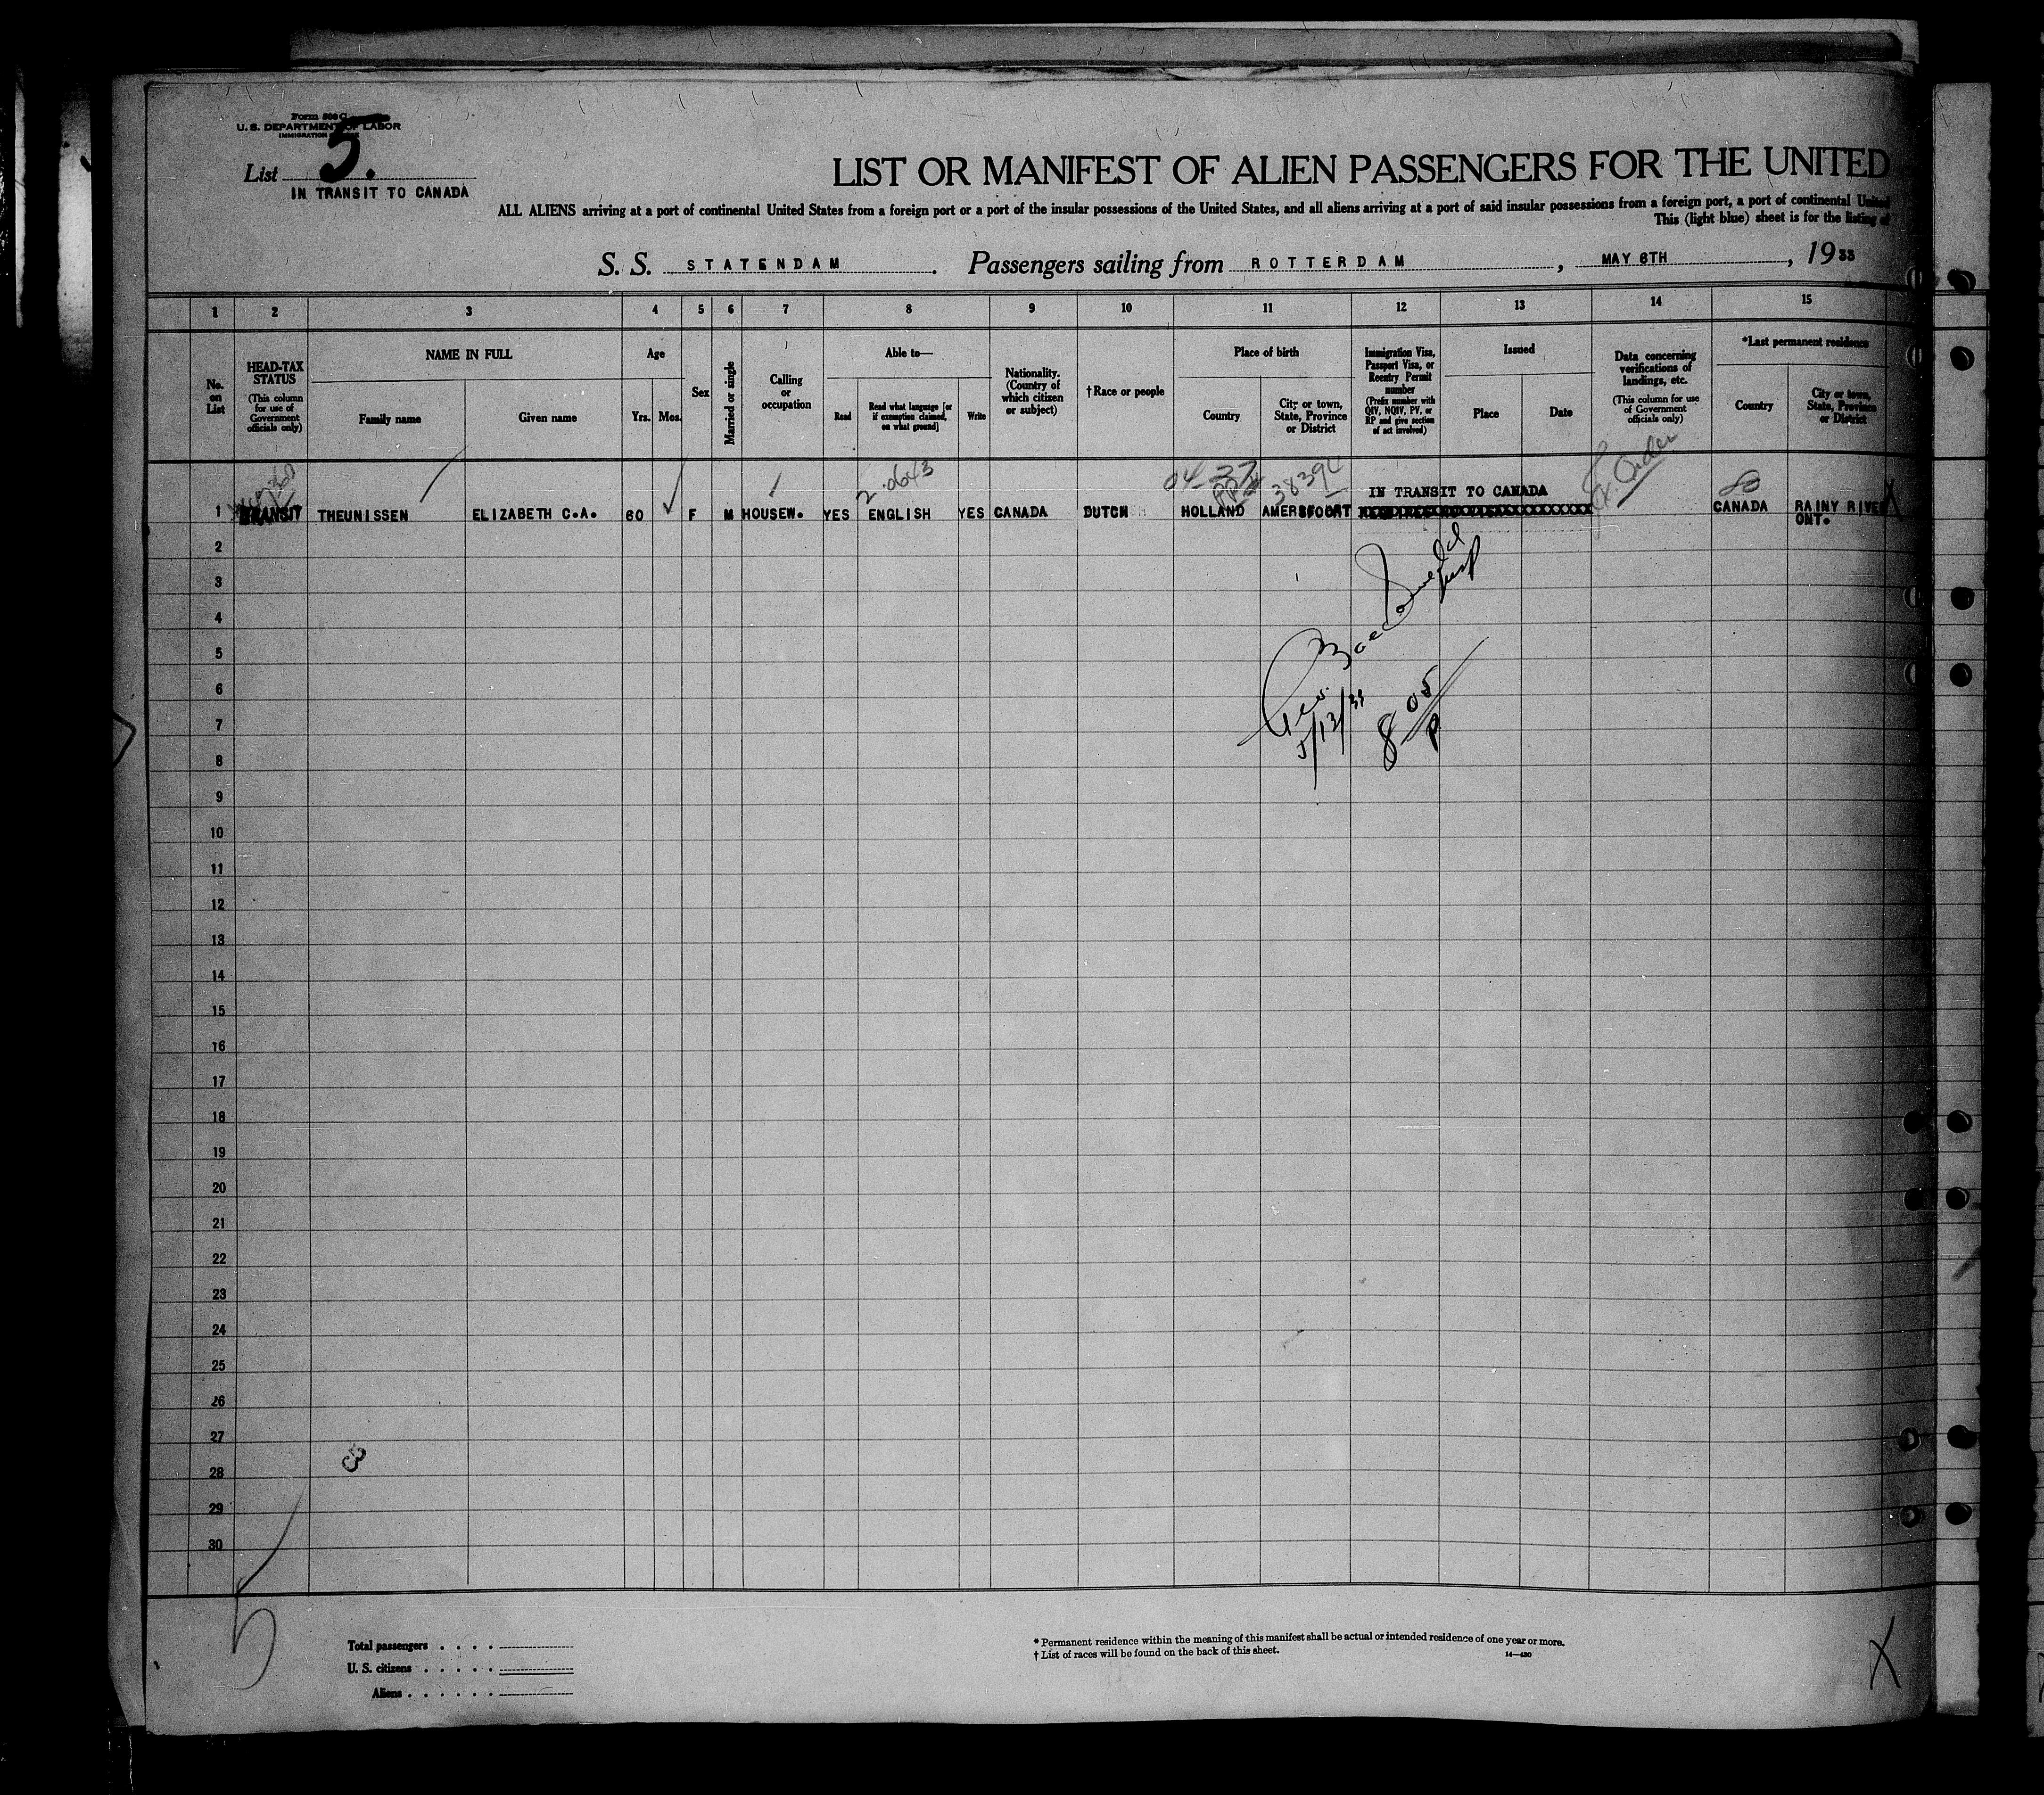 Form 500 G
U. S. DEPARTMENT OF LABOR
IMMIGRATION
List 5.
IN TRANSIT TO CANADA
LIST OR MANIFEST OF ALIEN PASSENGERS FOR THE UNITED
ALL ALIENS arriving at a port of continental United States from a foreign port or a port of the insular possessions of the United States, and all aliens arriving at a port of said insular possessions from a foreign port, a port of continental United
This (light blue) sheet is for the listing of
S. S. STATENDAM. Passengers sailing from ROTTERDAM, MAY 6TH, 1933
1 2 3 4 5 6 7 8 9 10 11 12 13 14 15
No. on List
HEAD-TAX STATUS
(This column for use of Government officials only)
NAME IN FULL
Family name
Given name
Age
Yrs. Mos.
Sex
Married or single
Calling or occupation
Able to—
Read
Read what language [or if exemption claimed, on what ground]
Write
Nationality. (Country of which citizen or subject)
†Race or people
Place of birth
Country
City or town, State, Province or District
Immigration Visa, Passport Visa, or Reentry Permit number
(Prefix number with QIV, NQIV, PV, or RP and give section of act involved)
Issued
Place
Date
Data concerning verifications of landings, etc.
(This column for use of Government officials only)
*Last permanent residence
Country
City or town, State, Province or District
38394
Order
IN TRANSIT TO CANADA
1 TRANSIT THEUNISSEN ELIZABETH C.A. 60 F M HOUSEW. YES ENGLISH YES CANADA DUTCH HOLLAND AMERSFOORT CANADA RAINY RIVER
ONT.
2
3
4
5
6
7
5/13/33
8 05 P
8
9
10
11
12
13
14
15
16
17
18
19
20
21
22
23
24
25
26
27
28
29
30
Total passengers . . . .
U. S. citizens . . . . .
Aliens . . . . . .
* Permanent residence within the meaning of this manifest shall be actual or intended residence of one year or more.
† List of races will be found on the back of this sheet.
14—430